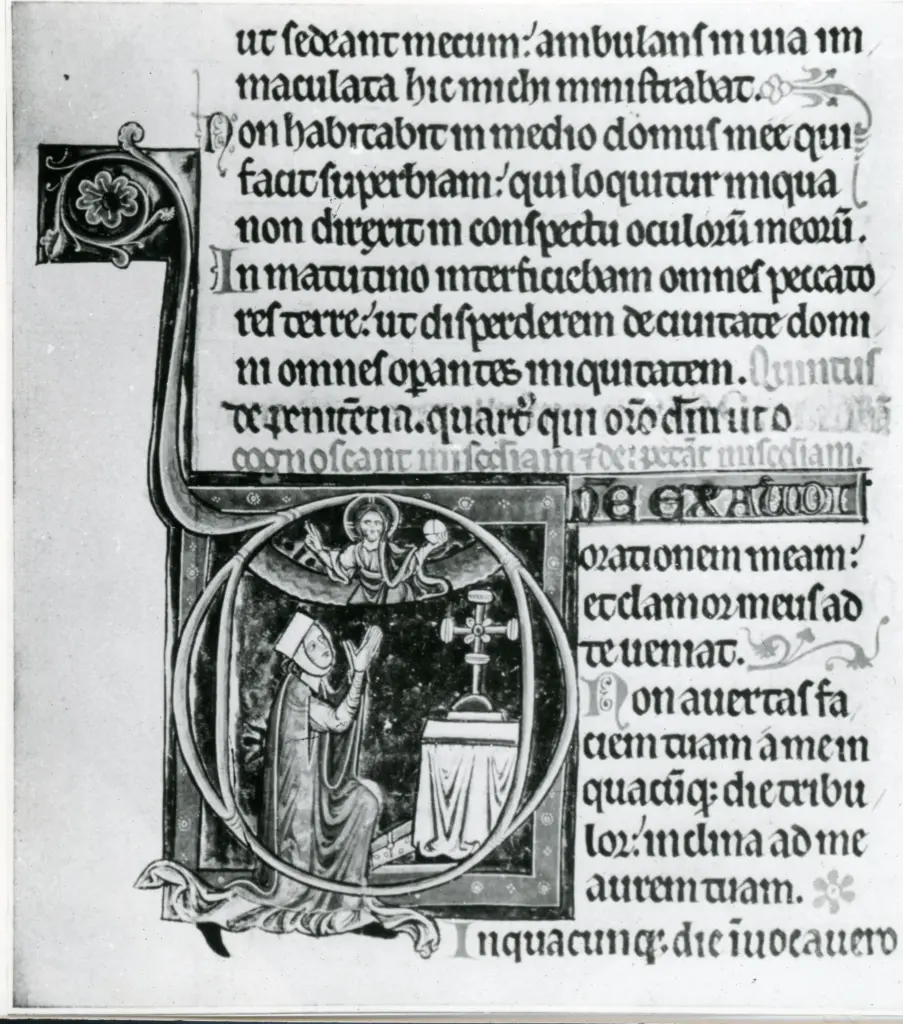 ut sedeant mecum: ambulans in uia im
maculata hic michi ministrabat.
Non habitabit in medio domus mee qui
facit superbiam: qui loquitur iniqua
non direxit in conspectu oculorū meorū.
In matutino interficiebam omnes peccato
res terre: ut disperderem de ciuitate domi
ni omnes opantes iniquitatem. Quintus
de penitēcia. quart9 qui orō dm̄ ut o
cognoscant
DNE EXAUDI
orationem meam:
et clamor meus ad
te ueniat.
Non auertas fa
ciem tuam a me in
quacūq; die tribu
lor: inclina ad me
aurem tuam.
In quacunq; die īuocauero